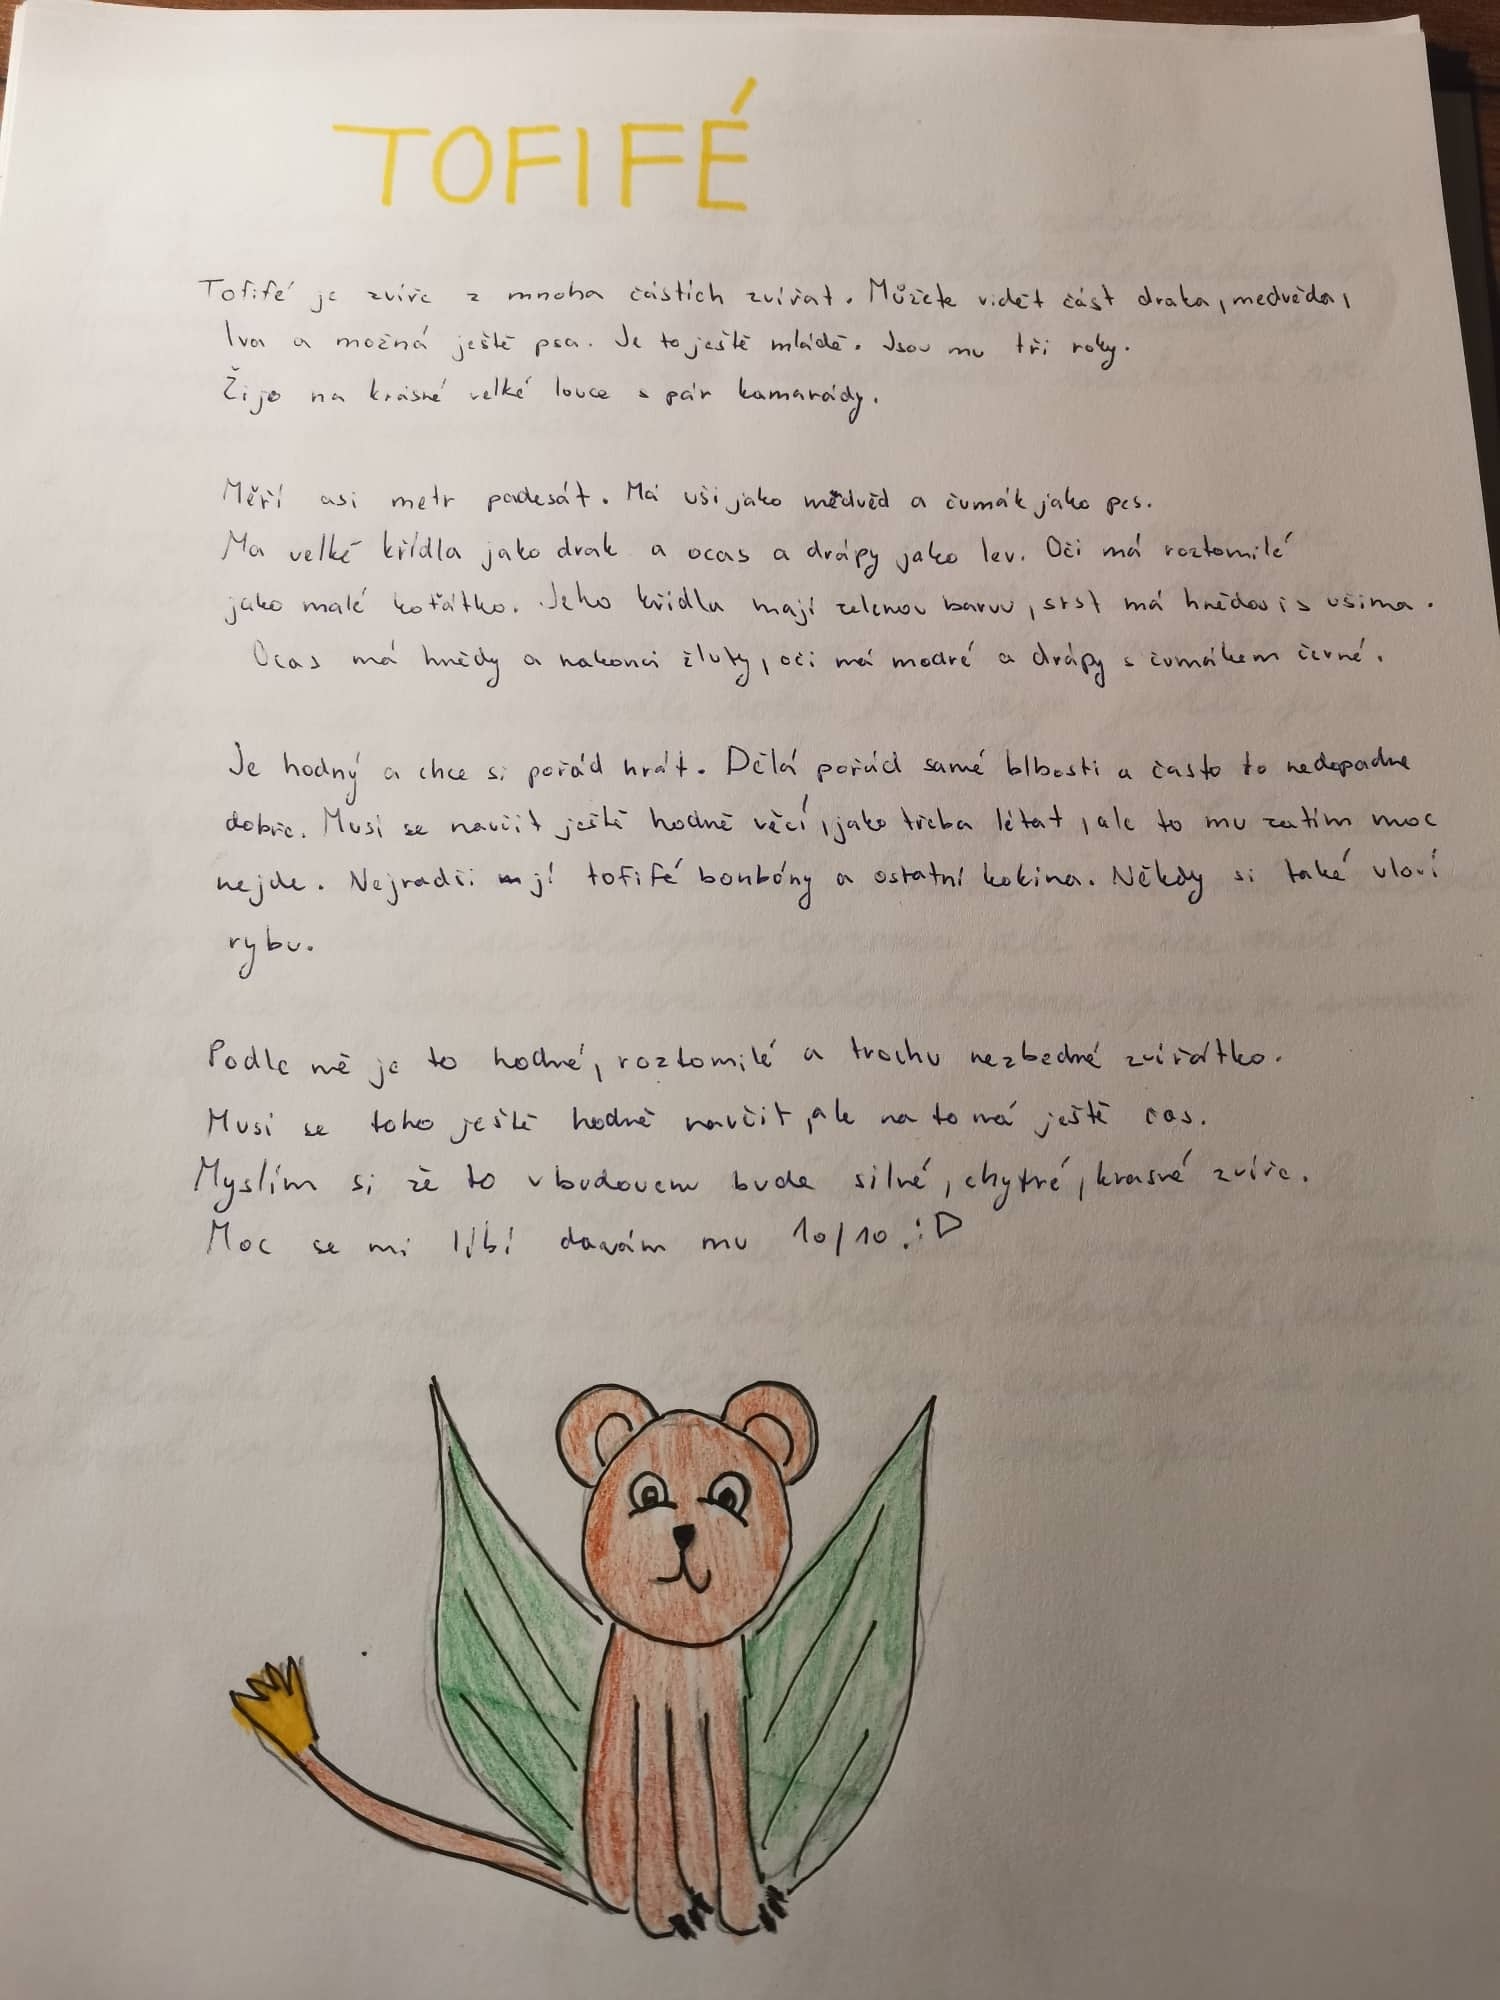 TOFIFÉ
Tofifé je zvíře z mnoha částích zvířat. Můžete vidět část draka, medvěda,
lva a možná ještě psa. Je to ještě mládě. Jsou mu tři roky.
Žije na krásné velké louce s pár kamarády.
Měří asi metr padesát. Má uši jako medvěd a čumák jako pes.
Ma velké křídla jako drak a ocas a drápy jako lev. Oči má roztomilé
jako malé koťátko. Jeho křídla mají zelenou barvu, srst má hnědou i s ušima.
Ocas má hnědy a nakonci žluty, oči má modré a drápy s čumákem černé.
Je hodný a chce si pořád hrát. Dělá pořád samé blbosti a často to nedopadne
dobře. Musí se naučit ještě hodně věcí, jako třeba létat, ale to mu zatím moc
nejde. Nejradši jí tofifé bonbóny a ostatní kokina. Někdy si také uloví
rybu.
Podle mě je to hodné, roztomilé a trochu nezbedné zvířátko.
Musí se toho ještě hodně naučit, ale na to má ještě čas.
Myslím si že to vbudoucnu bude silné, chytré, krasné zvíře.
Moc se mi líbí davám mu 10/10 :D